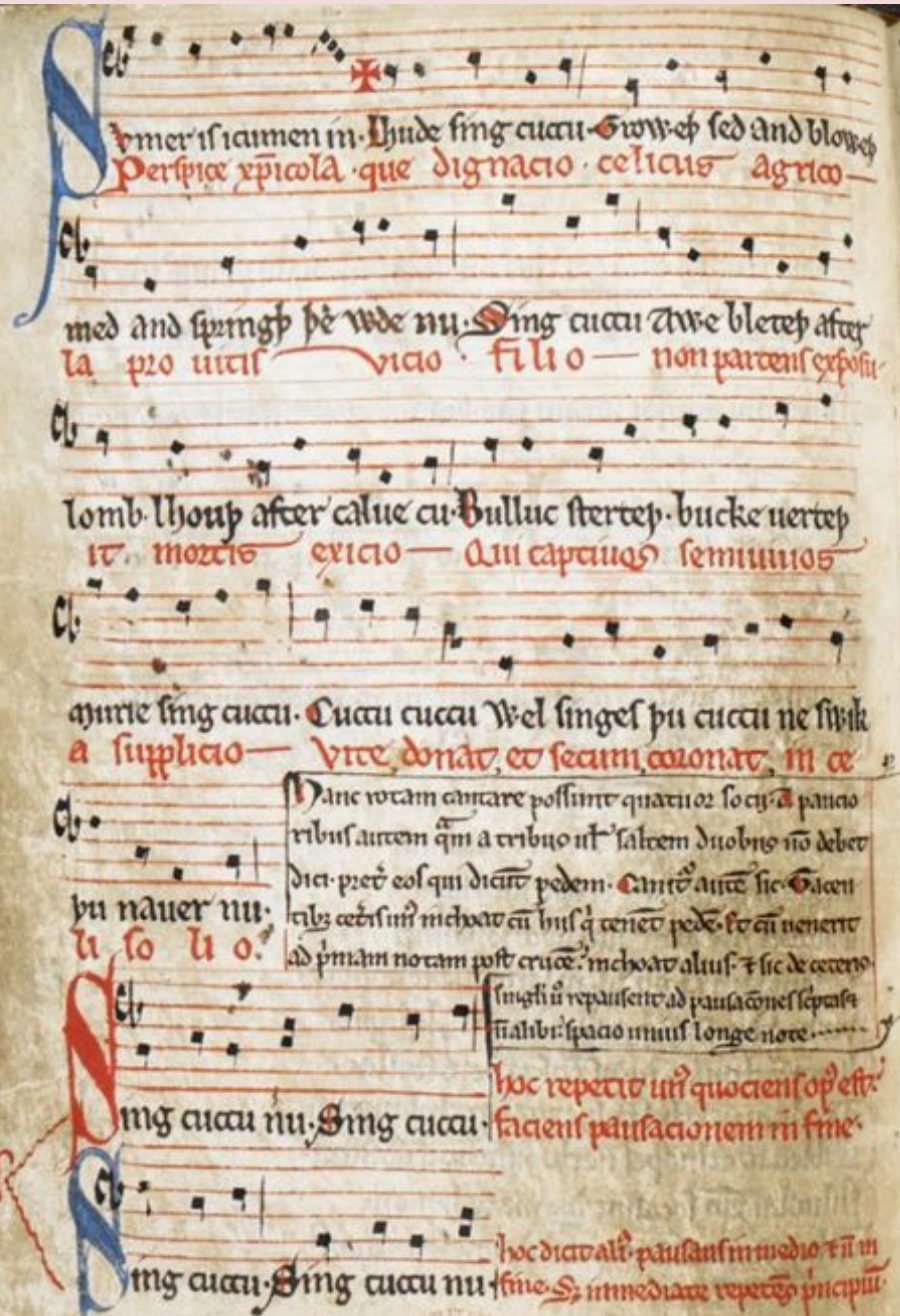 Svmer is icumen in· Lhude sing cuccu· Groweþ sed and bloweþ
Perspice xp̄icola · que dignacio · celicus agrico—
med and springþ þe wde nu· Sing cuccu Awe bleteþ after
la pro uitis vicio · filio— non parcens exposu-
lomb· lhouþ after calue cu· Bulluc sterteþ· bucke uerteþ
it mortis exicio— Qui captiuos semiuiuos
murie sing cuccu· Cuccu cuccu Wel singes þu cuccu ne swik
a supplicio— Vite donat, et secum coronat, in ce
þu nauer nu·
li so li o·
Hanc rotam cantare possunt quatuor socij· A paucio
ribus autem qͣm a tribus ul̄ saltem duobus nō debet
dici· pret̾ eos qui dicūt pedem· Canit᷑ autē sic· Tacen
tibꝫ cet̾is unꝰ inchoat cū hiis q̇ tenēt pedē· Et cū uenerit
ad p̾mam notam post crucē· inchoat alius· ⁊ sic de ceteris·
singl̾i u̾ repausent ad pausacōnes sc̾ptas ⁊
nō alibi· spacio unius longe note······
Sing cuccu nu· Sing cuccu·
hoc repetit unꝰ quociens opꝰ est·
faciens pausacionem in fine·
Sing cuccu· Sing cuccu nu·
hoc dicit aliꝰ· pausans in medio ⁊ nō in
fine· Sꝫ immediate repetēs p̾incipiū·